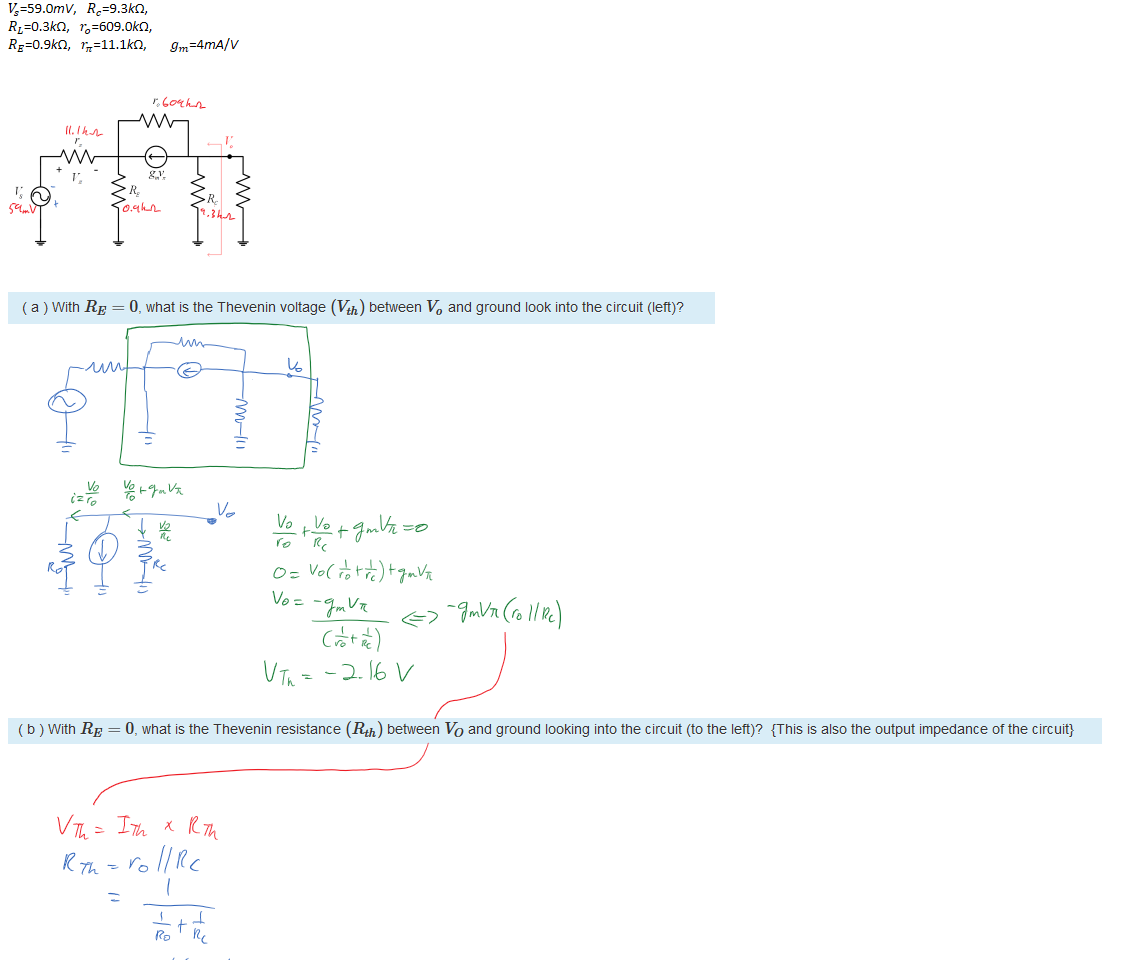 Vs=59.0mV, Rc=9.3kΩ,
RL=0.3kΩ, ro=609.0kΩ,
RE=0.9kΩ, rπ=11.1kΩ, gm=4mA/V
ro 609kΩ
11.1kΩ
rπ
+ Vπ -
gmVπ
Vo
Vs
59mV
-
+
RE
0.9kΩ
RC
9.3kΩ
( a ) With RE = 0, what is the Thevenin voltage (Vth) between Vo and ground look into the circuit (left)?
Vo
i=Vo/ro Vo/ro+gmVπ
Vo
Vo/Rc
Ro
Rc
Vo/ro + Vo/Rc + gmVπ =0
0= Vo(1/ro+1/rc)+gmVπ
Vo= -gmVπ/(1/ro+1/Rc) <=> -gmVπ(ro//Rc)
VTh = -2.16 V
( b ) With RE = 0, what is the Thevenin resistance (Rth) between VO and ground looking into the circuit (to the left)? {This is also the output impedance of the circuit}
VTh = ITh x RTh
RTh = ro//Rc
= 1/(1/Ro + 1/Rc)